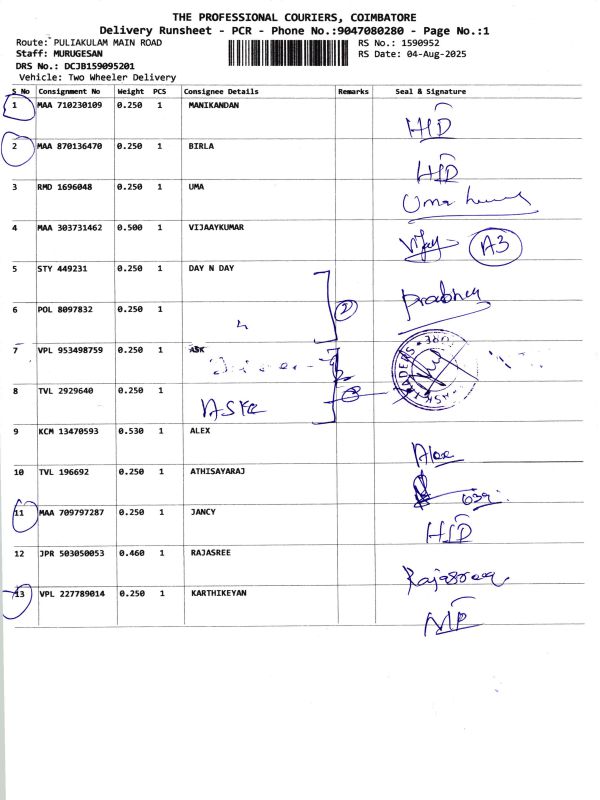 THE PROFESSIONAL COURIERS, COIMBATORE
Delivery Runsheet - PCR - Phone No.:9047080280 - Page No.:1
Route: PULIAKULAM MAIN ROAD RS No.: 1590952
Staff: MURUGESAN RS Date: 04-Aug-2025
DRS No.: DCJB159095201
Vehicle: Two Wheeler Delivery
S No Consignment No Weight PCS Consignee Details Remarks Seal & Signature
1 MAA 710230109 0.250 1 MANIKANDAN HID
2 MAA 870136470 0.250 1 BIRLA HID
3 RMD 1696048 0.250 1 UMA Uma
4 MAA 303731462 0.500 1 VIJAAYKUMAR Vijay A3
5 STY 449231 0.250 1 DAY N DAY
6 POL 8097832 0.250 1 2 Prabhu
7 VPL 953498759 0.250 1 ASK
8 TVL 2929640 0.250 1
9 KCM 13470593 0.530 1 ALEX Alex
10 TVL 196692 0.250 1 ATHISAYARAJ
11 MAA 709797287 0.250 1 JANCY HID
12 JPR 503050053 0.460 1 RAJASREE Rajasree
13 VPL 227789014 0.250 1 KARTHIKEYAN NP